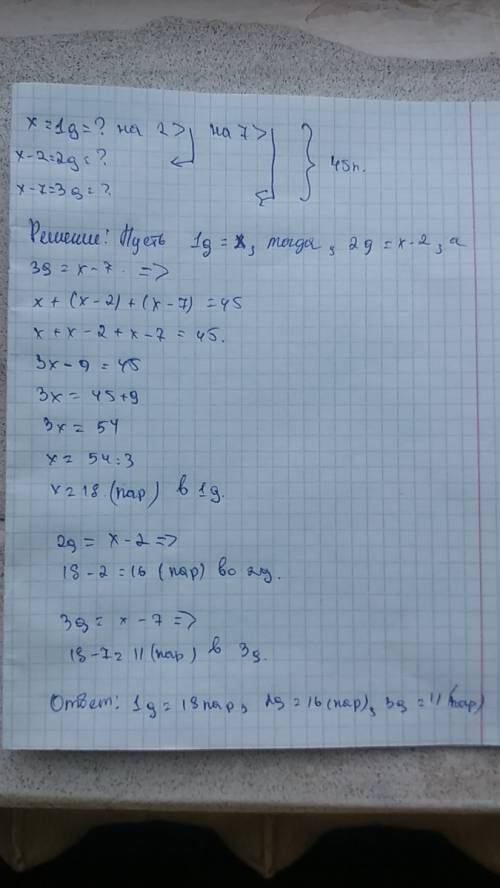 x=1д=? на 2> на 7>
x-2=2д=? 45п.
x-7=3д=?
Решение: Пусть 1д=x, тогда, 2д=x-2, а
3д=x-7. =>
x+(x-2)+(x-7)=45
x+x-2+x-7=45.
3x-9=45
3x=45+9
3x=54
x=54:3
x=18.(пар) в 1д.
2д=x-2=>
18-2=16 (пар) во 2д.
3д=x-7=>
18-7=11(пар) в 3д.
Ответ: 1д=18пар, 2д=16(пар), 3д=11(пар)